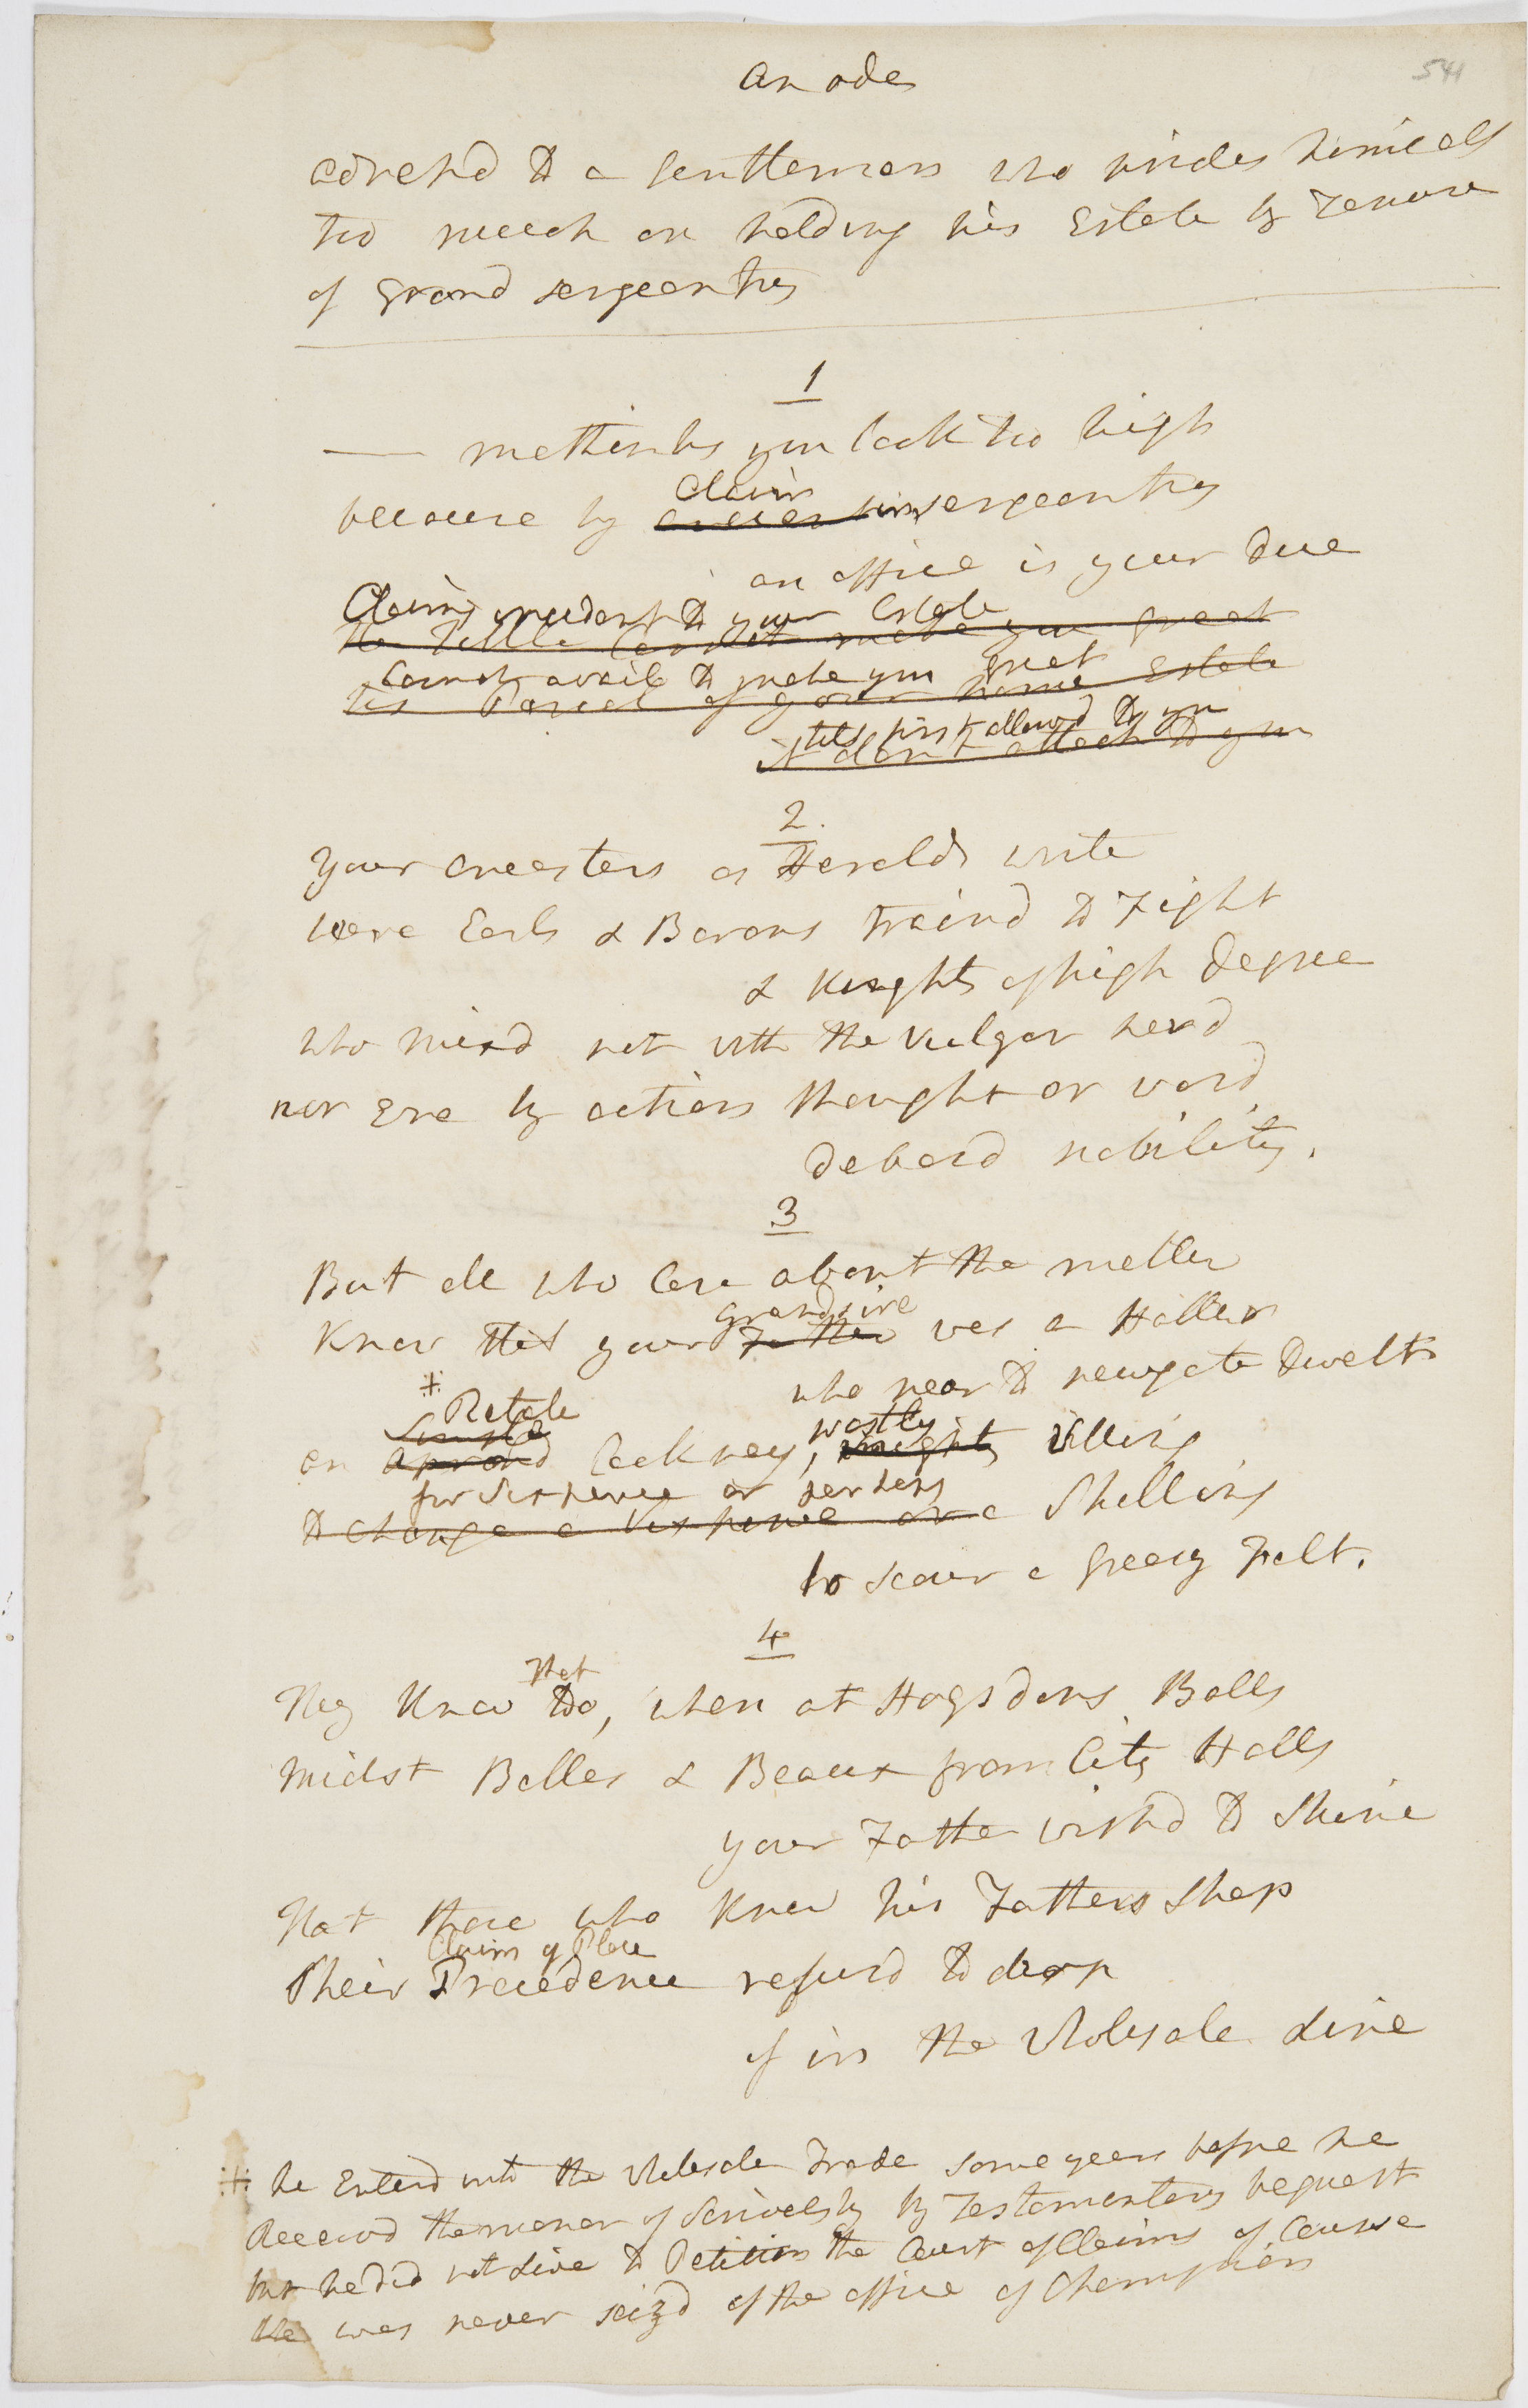 541
an ode
adressd to a Gentleman who prides himself
too much on holding his Estate by Tenure
of Grand sergeantry
1
— methinks you look too high
Claim
because by sergeantry
an office is your due
Claims incident to your Estate
the Tittle Can not make you great
Cannot avail to make you great
tis Parcel of your Estate
tils first allowd to you
it dont attach to you
2.
your ancesters as Heralds write
were Earls & Barons traind to Fight
& Knights of high degree
who mixd not with the vulgar herd
nor Ere by actions thought or word
debasd nobility.
3
But all who Care about the matter
grandsire
Know that your Father was a Hatter
who near to newgate dwelt
⁜ Retale
Simple
an aprond Cockney, mighty willing
wostly
for Sixpence or perhaps
to change a Sixpence or a Shilling
to scour a greasy Felt.
4
that
Nay Know too, when at Hogsdons Balls
midst Belles & Beaux from City Halls
your Father wishd to Shine
That those who Knew his Fathers Shop
Claim of Place
Their Precedence refusd to drop
if in the Wholesale Line
⁜ he Enterd into the Wholesale Trade some years before he
Receivd the manor of Scrivelsby by Testamentary bequest
but he did not Live to Petition the Court of Claims of Course
he was never seizd of the office of Champion